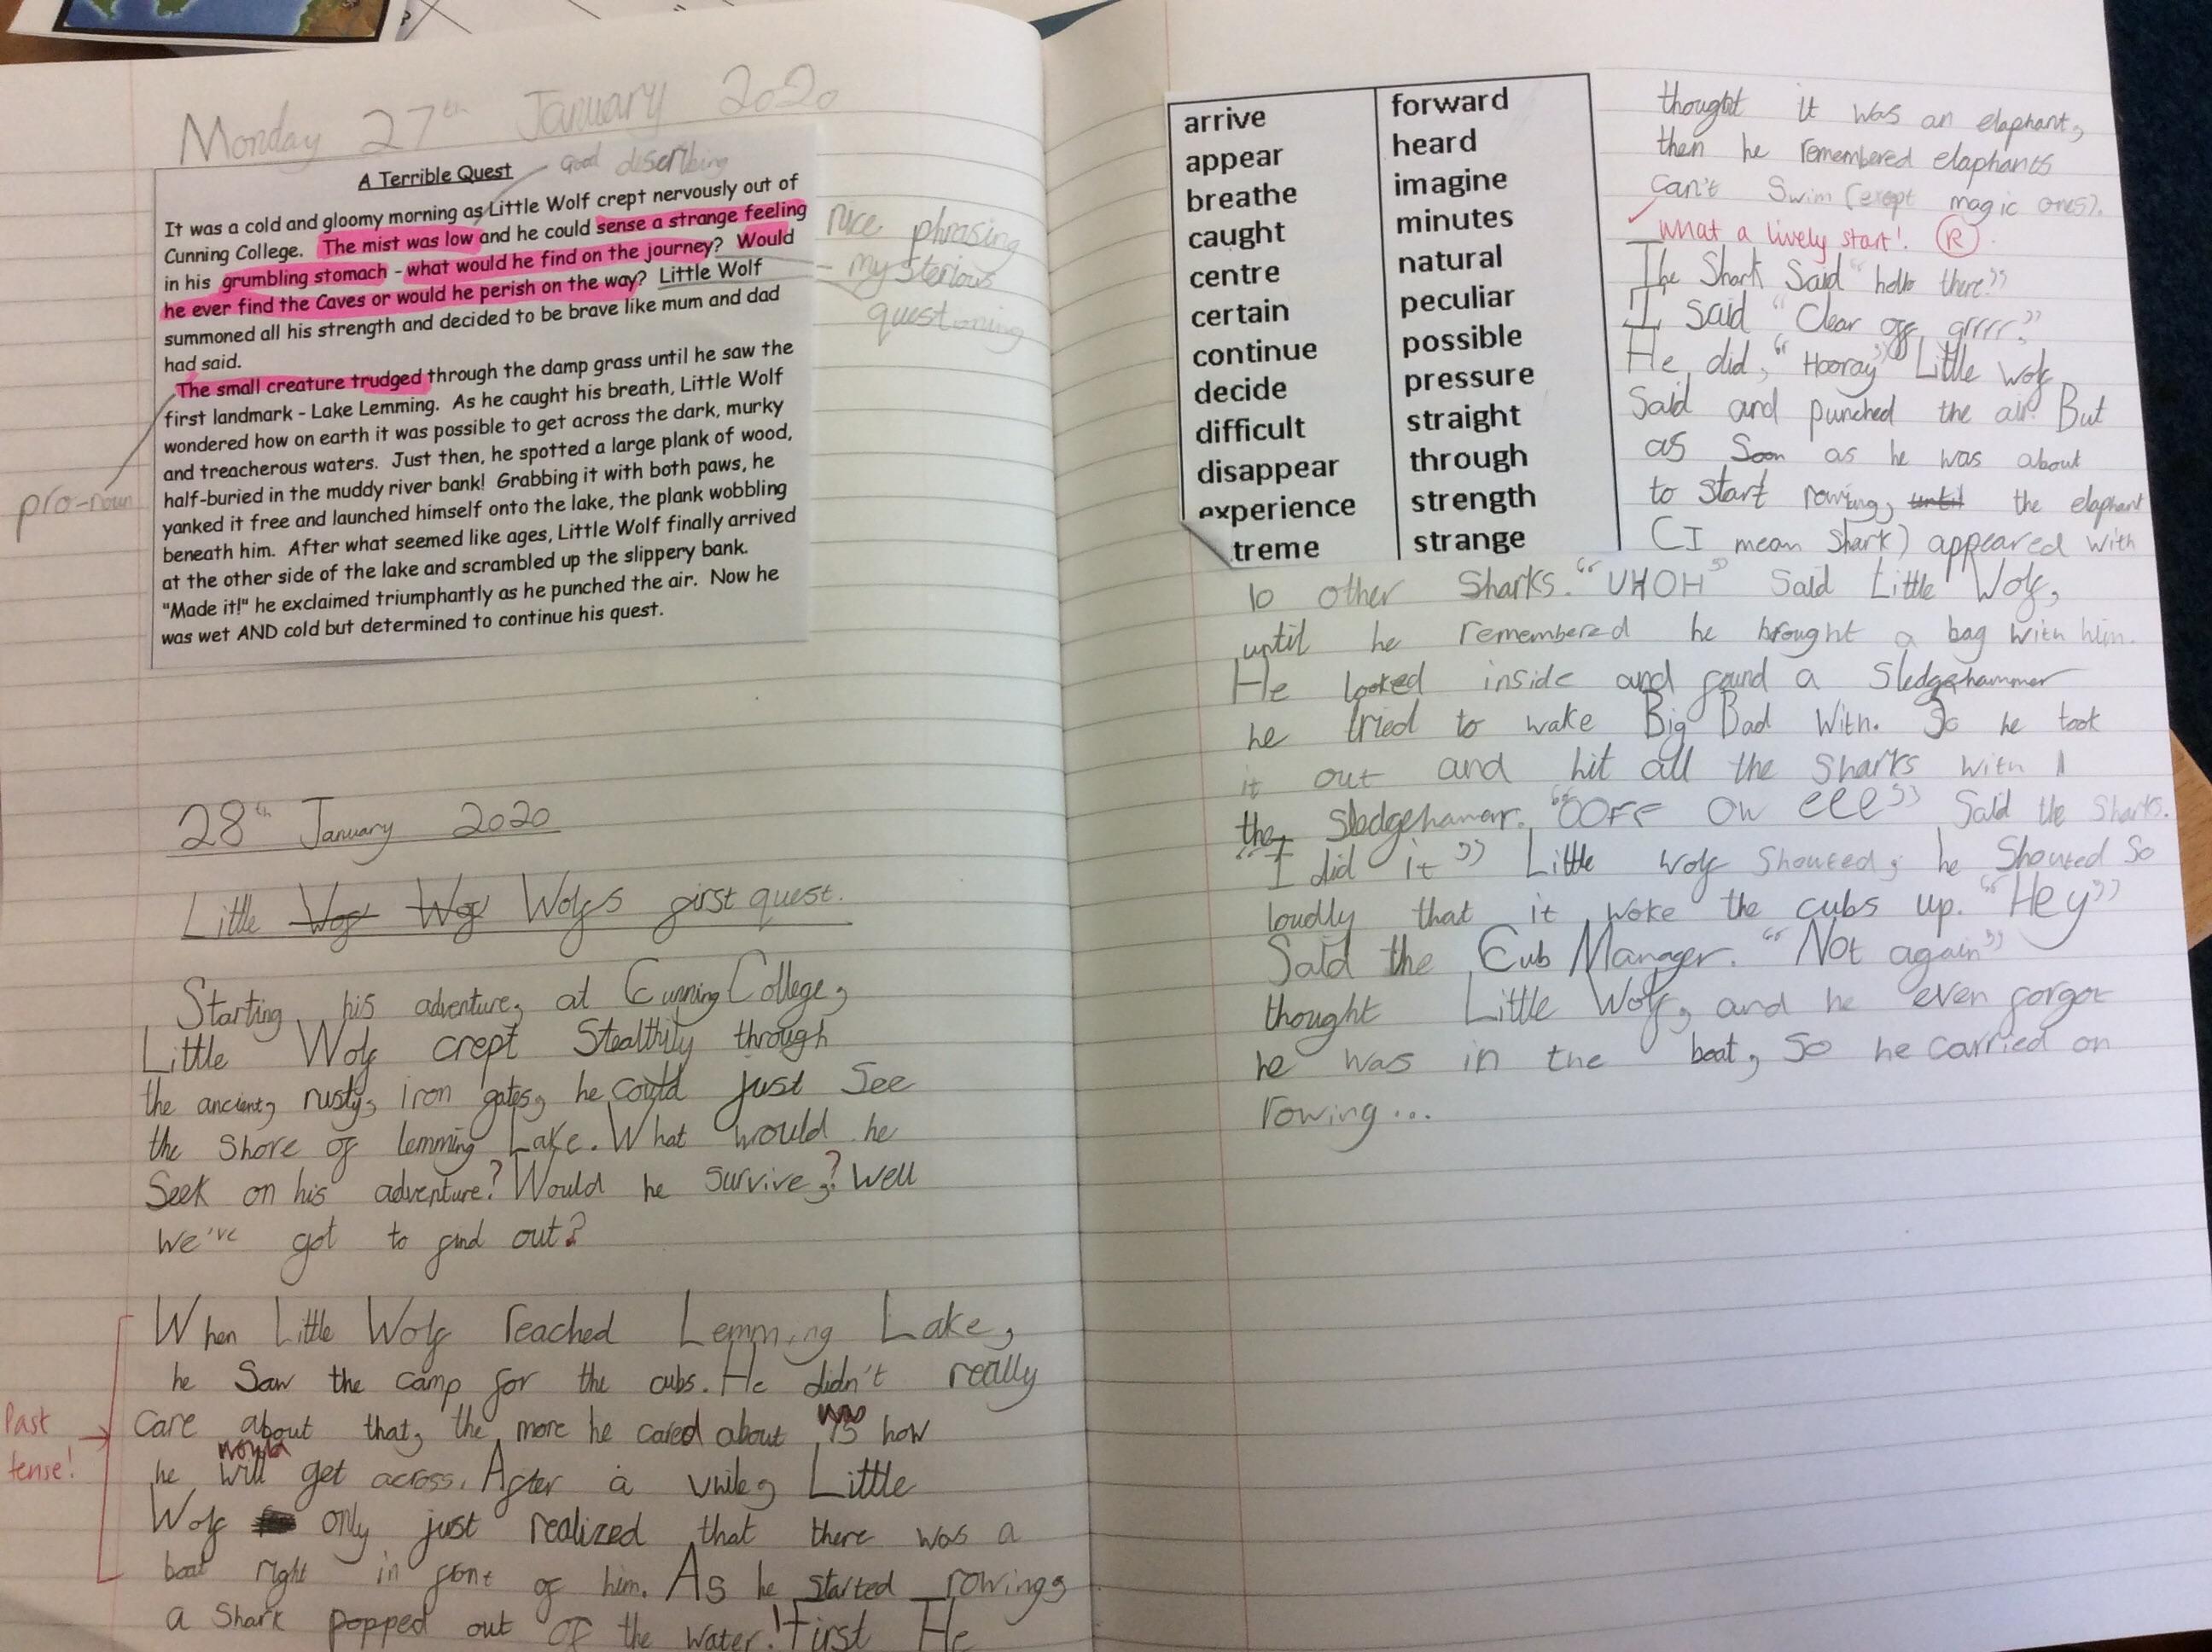 Monday 27th January 2020
A Terrible Quest
Good describing
It was a cold and gloomy morning as Little Wolf crept nervously out of
Cunning College. The mist was low and he could sense a strange feeling
in his grumbling stomach - what would he find on the journey? Would
he ever find the Caves or would he perish on the way? Little Wolf
summoned all his strength and decided to be brave like mum and dad
had said.
The small creature trudged through the damp grass until he saw the
first landmark - Lake Lemming. As he caught his breath, Little Wolf
wondered how on earth it was possible to get across the dark, murky
and treacherous waters. Just then, he spotted a large plank of wood,
half-buried in the muddy river bank! Grabbing it with both paws, he
yanked it free and launched himself onto the lake, the plank wobbling
beneath him. After what seemed like ages, Little Wolf finally arrived
at the other side of the lake and scrambled up the slippery bank.
"Made it!" he exclaimed triumphantly as he punched the air. Now he
was wet AND cold but determined to continue his quest.
nice phrasing
- mysterious
questioning
pro-noun
28th January 2020
Little Wof Wof Wolfs first quest.
Starting his adventure, at Cunning College,
Little Wolf crept Stealthily through
the ancient, rusty, iron gates, he could just See
the Shore of lemming Lake. What would he
Seek on his adventure? Would he survive,? Well
We've got to find out?
When Little Wolf reached Lemming Lake,
he Saw the camp for the cubs. He didn't really
care about that, the more he cared about is was how
he will would get across. After a while, Little
Wolf only just realized that there was a
boat right in font of him. As he started rowing,
a Shark popped out OF the water! First He
Past
tense!
arrive
appear
breathe
caught
centre
certain
continue
decide
difficult
disappear
experience
treme
forward
heard
imagine
minutes
natural
peculiar
possible
pressure
straight
through
strength
strange
thought it was an elaphant,
then he remembered elaphants
can't Swim (exept magic ones).
what a lively start! R
The Shark Said "hello there"
I Said "Clear off grrrr"
He did, "Hooray" Little wolf
Said and punched the air. But
as Soon as he was about
to start rowing, until the elephant
(I mean Shark) appeared with
10 other Sharks. "UHOH" Said Little Wolf,
until he remembered he brought a bag with him.
He looked inside and found a Sledgehammer
he tried to wake Big Bad With. So he took
it out and hit all the Sharks with
the Sledgehamer. "OOFF OW eee" Said the Sharks.
"I did it" Little Wolf Shouted, he Shouted So
loudly that it woke the cubs up. "Hey"
Said the Cub Manager. "Not again"
thought Little Wolf, and he even forgot
he was in the boat, So he carried on
rowing...